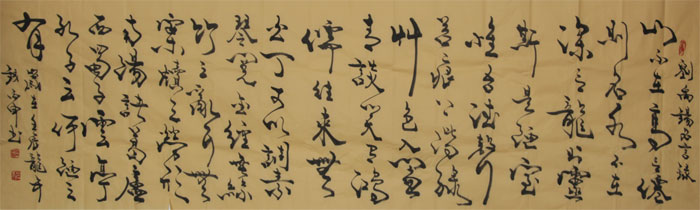 劉禹錫陋室銘
山不在高有僊
則名水不在
深有龍則靈
斯是陋室
惟吾德馨
苔痕上階綠
艸色入簾
青談笑有鴻
儒往來無
白丁可以調素
琴閱金經無絲
竹之亂耳無
案牘之勞形
南陽諸葛廬
西蜀子雲亭
孔子云何陋之
有
歲在壬辰龍年
書